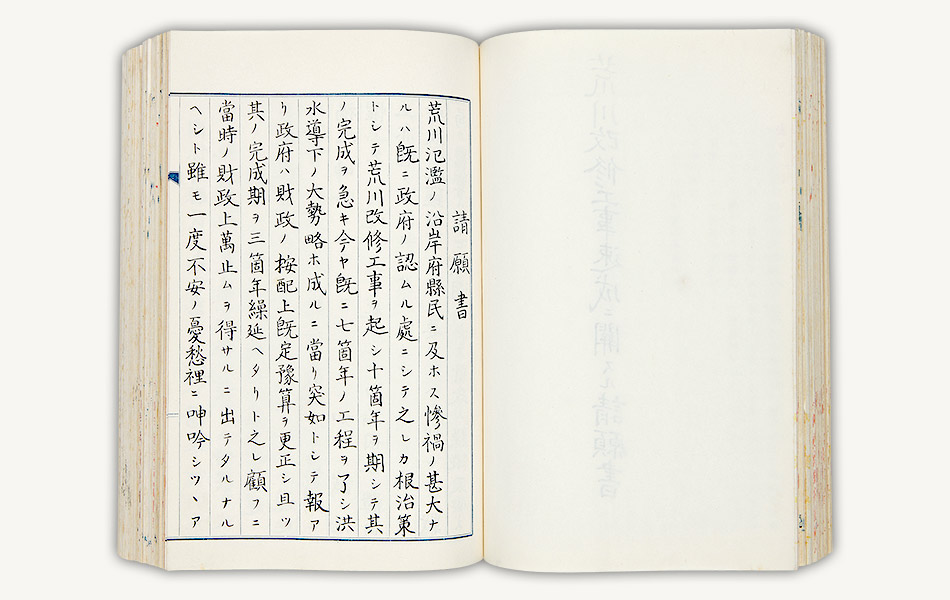 請願書
荒川氾濫ノ沿岸府縣民ニ及ホス慘禍ノ甚大ナ
ルハ既ニ政府ノ認ムル處ニシテ之レカ根治策
トシテ荒川改修工事ヲ起シ十箇年ヲ期シテ其
ノ完成ヲ急キ今ヤ既ニ七箇年ノ工程ヲ了シ洪
水導下ノ大勢略ホ成ルニ當リ突如トシテ報ア
リ政府ハ財政ノ按配上既定豫算ヲ更正シ且ツ
其ノ完成期ヲ三箇年繰延ヘタリト之レ顧フニ
當時ノ財政上萬止ムヲ得サルニ出テタルナル
ヘシト雖モ一度不安ノ憂愁裡ニ呻吟シツヽア